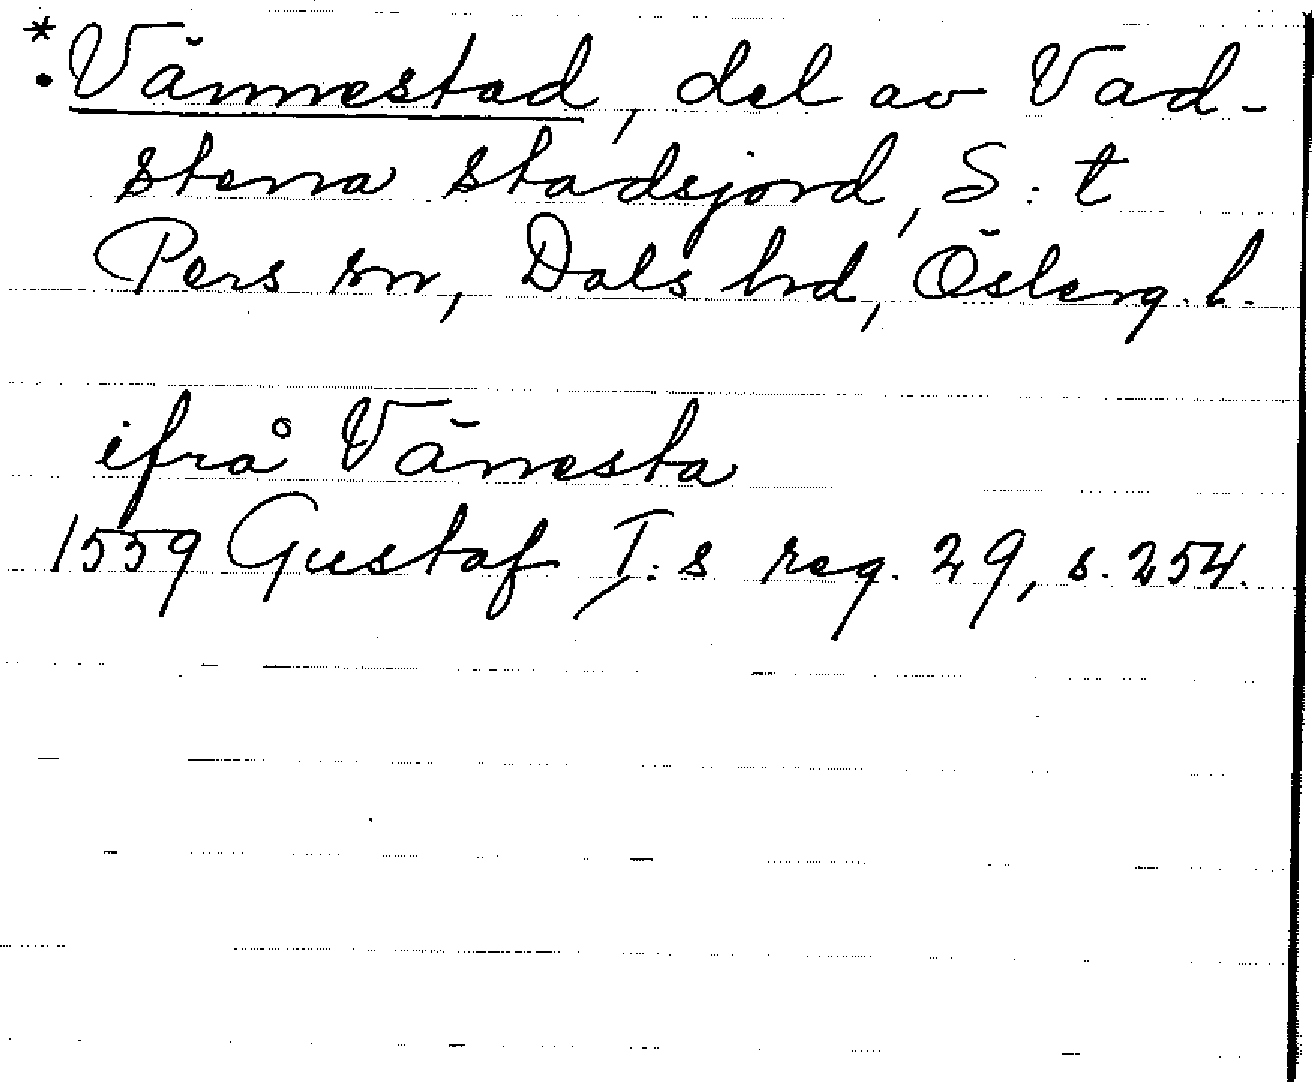 * Vännestad, del av Vad-
stena stadsjord, S:t
Pers sn, Dals hd, Österg. l.
ifrå Vännesta
1559 Gustaf I:s reg. 29, s. 254.